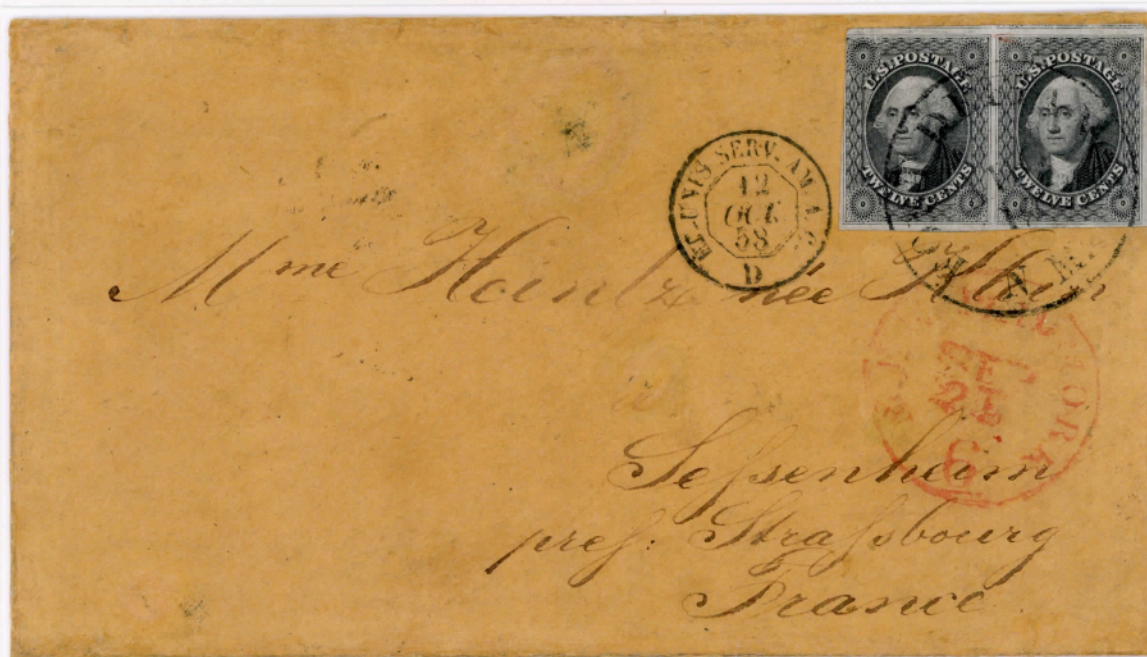 U.S. POSTAGE
TWELVE CENTS
U.S. POSTAGE
TWELVE CENTS
ET.-UNIS SERV. AM. A.C.
12
OCT.
58
D
N. M.
Mme Heintz née Klein
à
Seſsenheim
preſ: Straſsbourg
France
NEW YORK